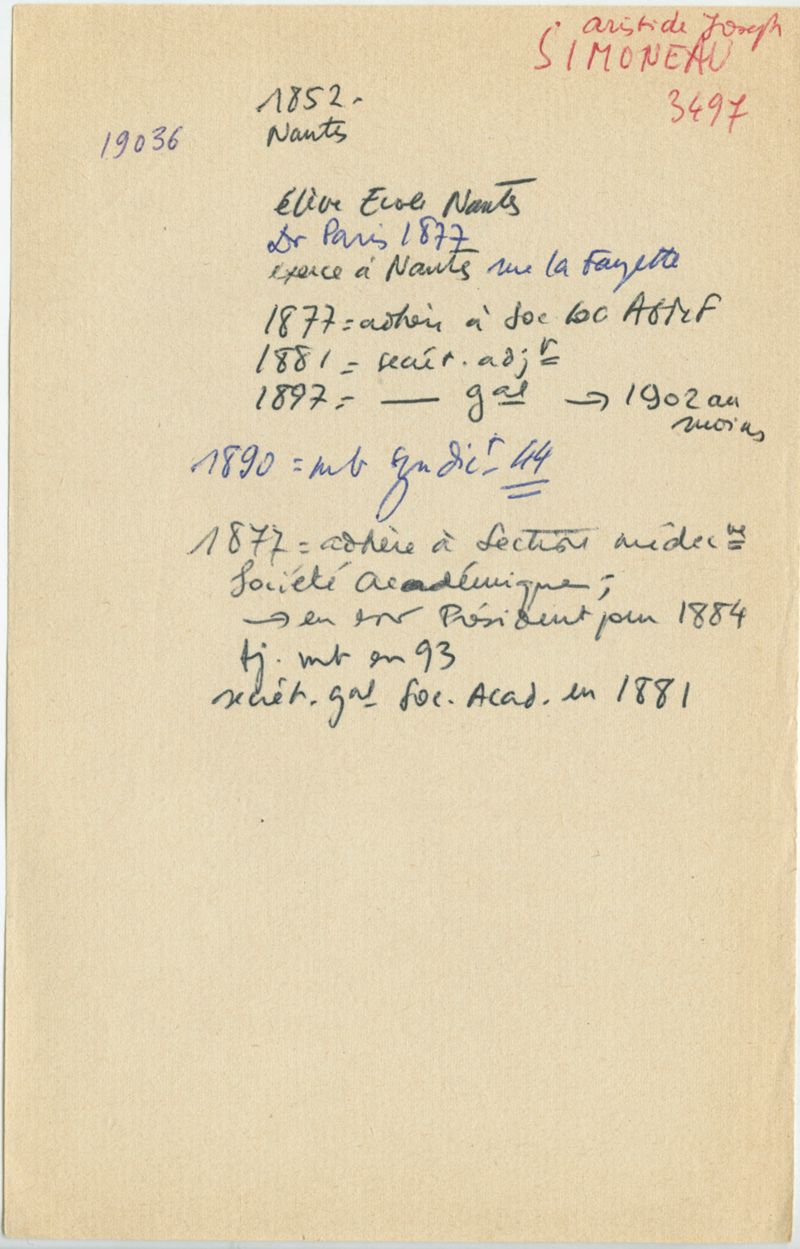 aristide Joseph
SIMONEAU
3497
1852 -
19036
Nantes
élève Ecole Nantes
Dr Paris 1877
exerce à Nantes rue la Fayette
1877 = adhère à Soc loc AGMF
1881 = secrét. adjt
1897 = — gal → 1902 au
moins
1890 = mb syndict 44
1877 = adhère à Section médecne
Société Académique ;
→ en Président pour 1884
tj. mb en 93
secrét. gal Soc. Acad. en 1881